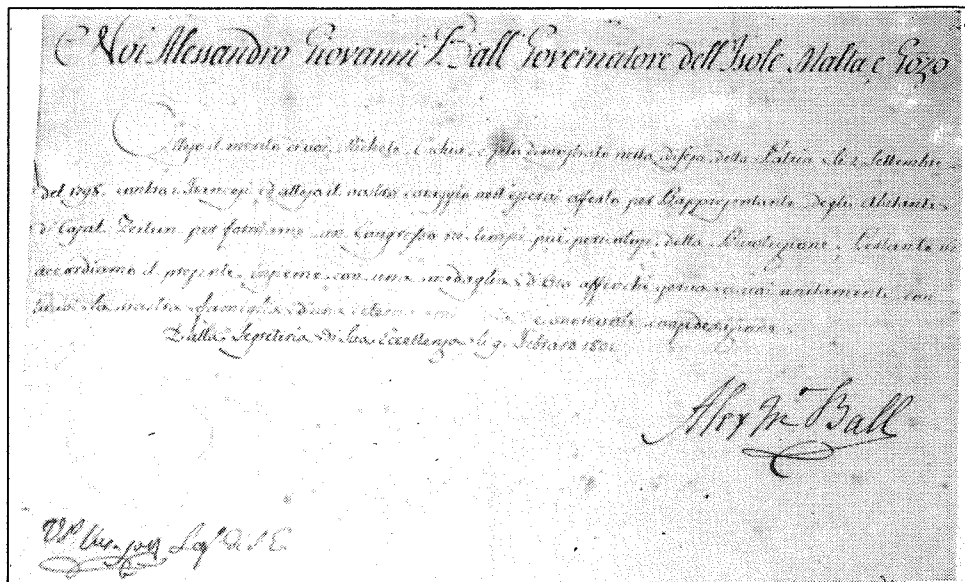 Noi Alessandro Giovanni Ball Governatore dell'Isole Malta e Gozo
Atteso il merito che voi, Michele Cachia, dimostrato nella difesa della Patria li 2 Settembre
del 1798. contro i Francesi ed atteso il vostro coraggio nell'esservi offerto per Rappresentante degli Abitanti
di Casal Zeitun per formarne un Congresso ne tempi più pericolosi della Rivoluzione, Pertanto vi
accordiamo il presente, insieme con una medaglia d'Oro affinchè possiate voi unitamente con
tutta la vostra famiglia d'una eterna e onorevole considerazione.
Dalla Segreteria di Sua Eccellenza li 9. Febraro 1801.
Ball